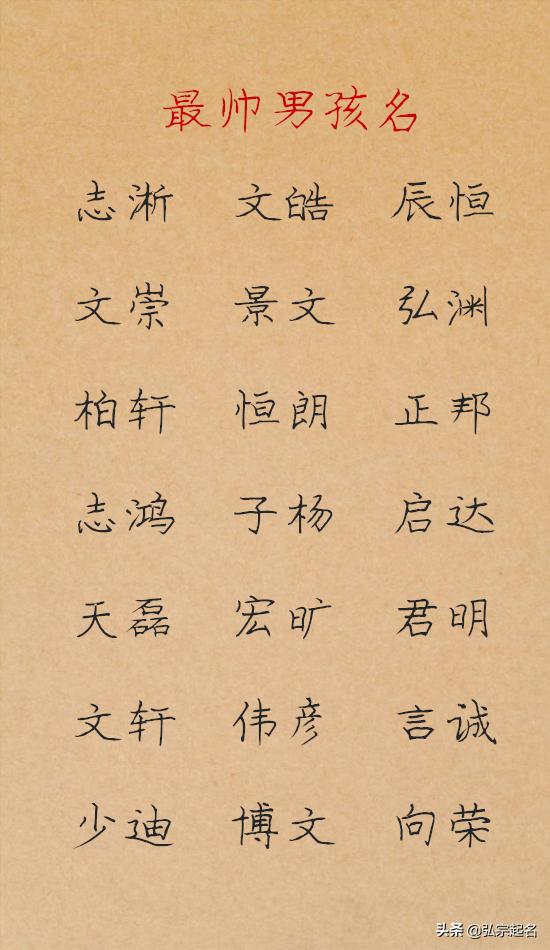 最帅男孩名
志淅 文皓 辰恒
文崇 景文 弘渊
柏轩 恒朗 正邦
志鸿 子杨 启达
天磊 宏旷 君明
文轩 伟彦 言诚
少迪 博文 向荣
头条 @弘宗起名